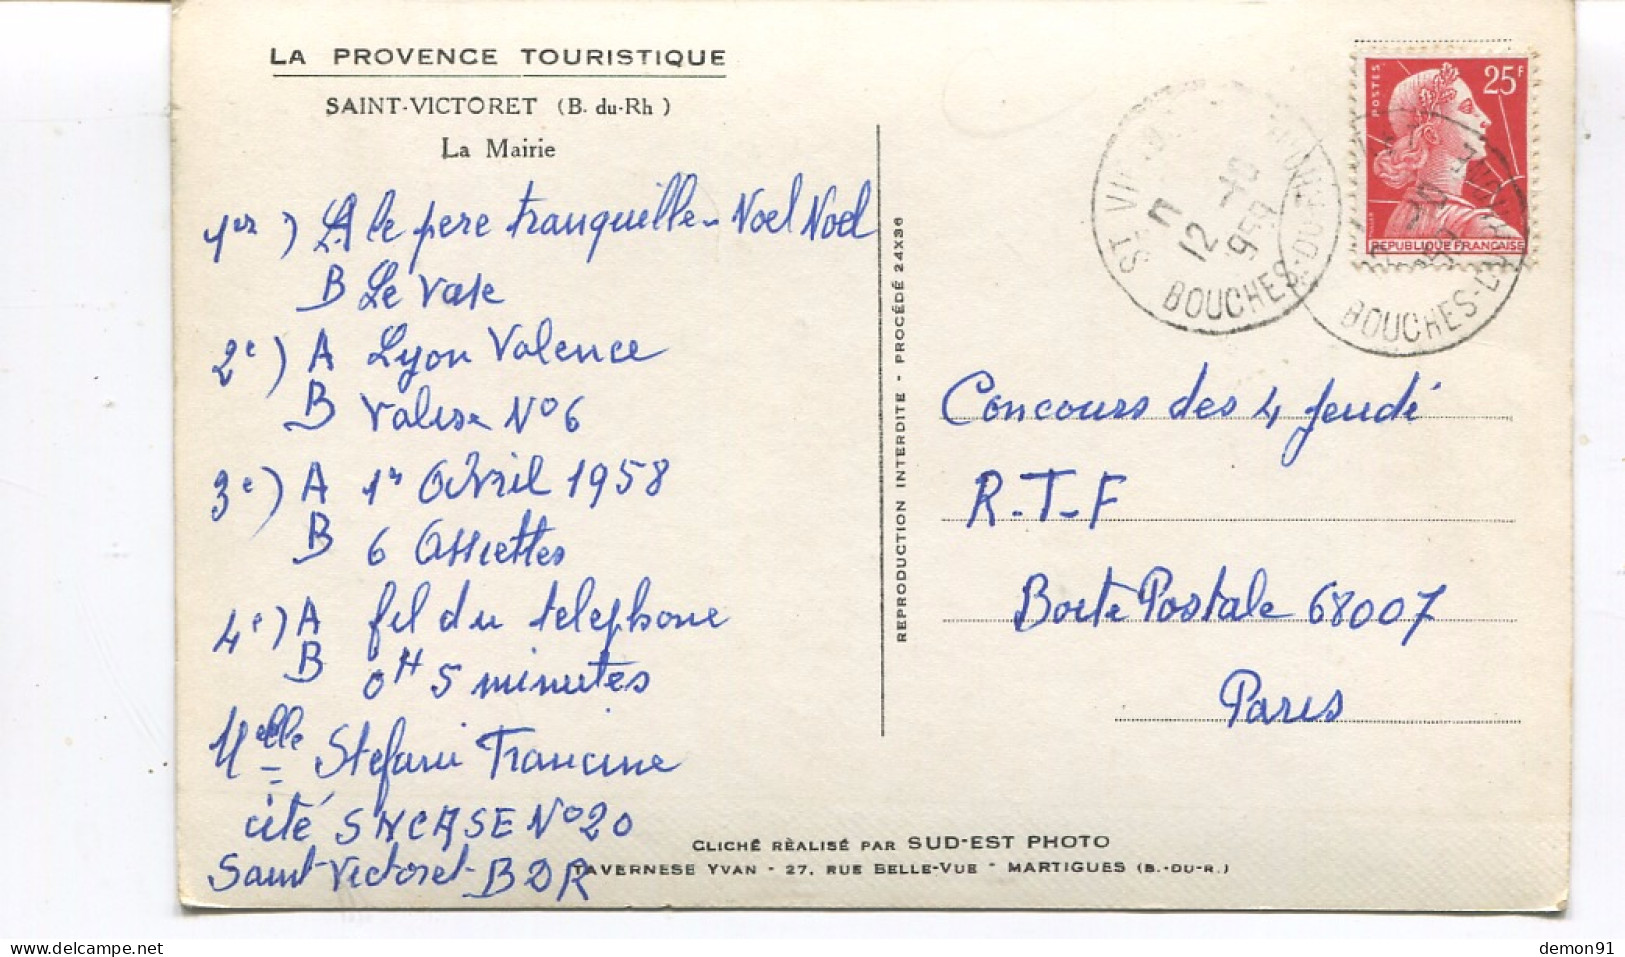 LA PROVENCE TOURISTIQUE
SAINT-VICTORET (B. du-Rh)
La Mairie
1er) A le pere tranquille - Noel Noel
B Le vase
2e) A Lyon Valence
B Valise No 6
3e) A 1er Avril 1958
B 6 Assiettes
4e) A fil du telephone
B 0H 5 minutes
Melle Stefani Francine
cité SNCASE No 20
Saint-Victoret - BDR
REPRODUCTION INTERDITE - PROCÉDÉ 24X36
CLICHÉ RÈALISÉ PAR SUD-EST PHOTO
TAVERNESE YVAN - 27, RUE BELLE-VUE - MARTIGUES (B.-DU-R.)
POSTES
25F
REPUBLIQUE FRANCAISE
12 -10
1959
BOUCHES-DU-
BOUCHES-D
Concours des 4 Jeudi
R-T-F
Boite Postale 68007
Paris
demon91